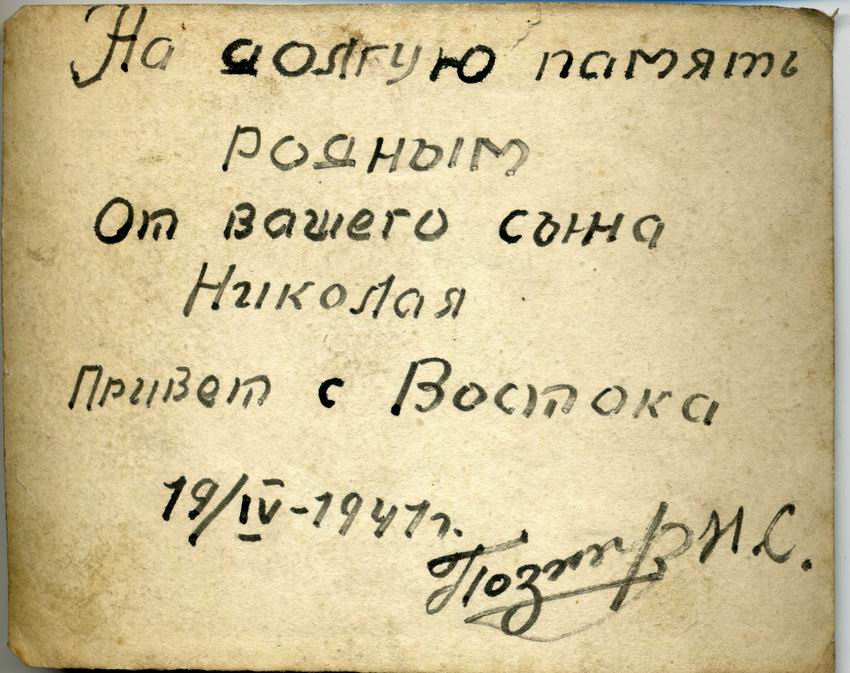 На долгую память
родным
От вашего сына
Николая
Привет с Востока
19/IV-1941г.
Н.С.